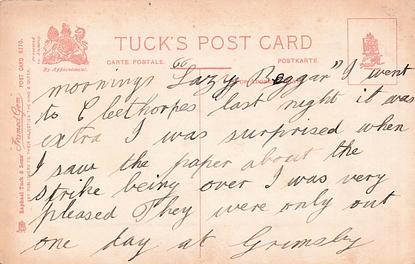 TUCK'S POST CARD
CARTE POSTALE. POSTKARTE.
By Appointment.
Raphael Tuck & Sons' "Framed Gem" POST CARD 6170.
mornings "Lazy Beggar" I went
to Cleethorpes last night it was
extra I was surprised when
I saw the paper about the
strike being over I was very
pleased They were only out
one day at Grimsby